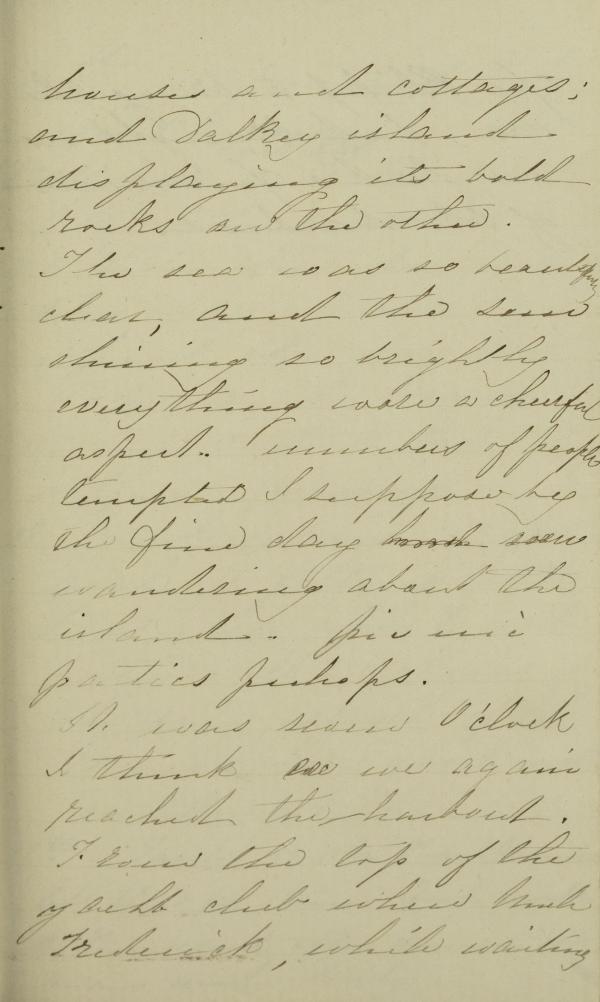 houses and cottages;
and Dalkey island
displaying its bold
rocks on the other.
The sea was so beautifully
clear, and the sun
shining so brightly
everything wore a cheerful
aspect.. numbers of people
tempted I suppose by
the fine day were
wandering about the
island. pic nic
parties perhaps.
It was seven O'clock
I think we again
reached the harbour.
From the top of the
yacht club where Uncle
Frederick, while waiting